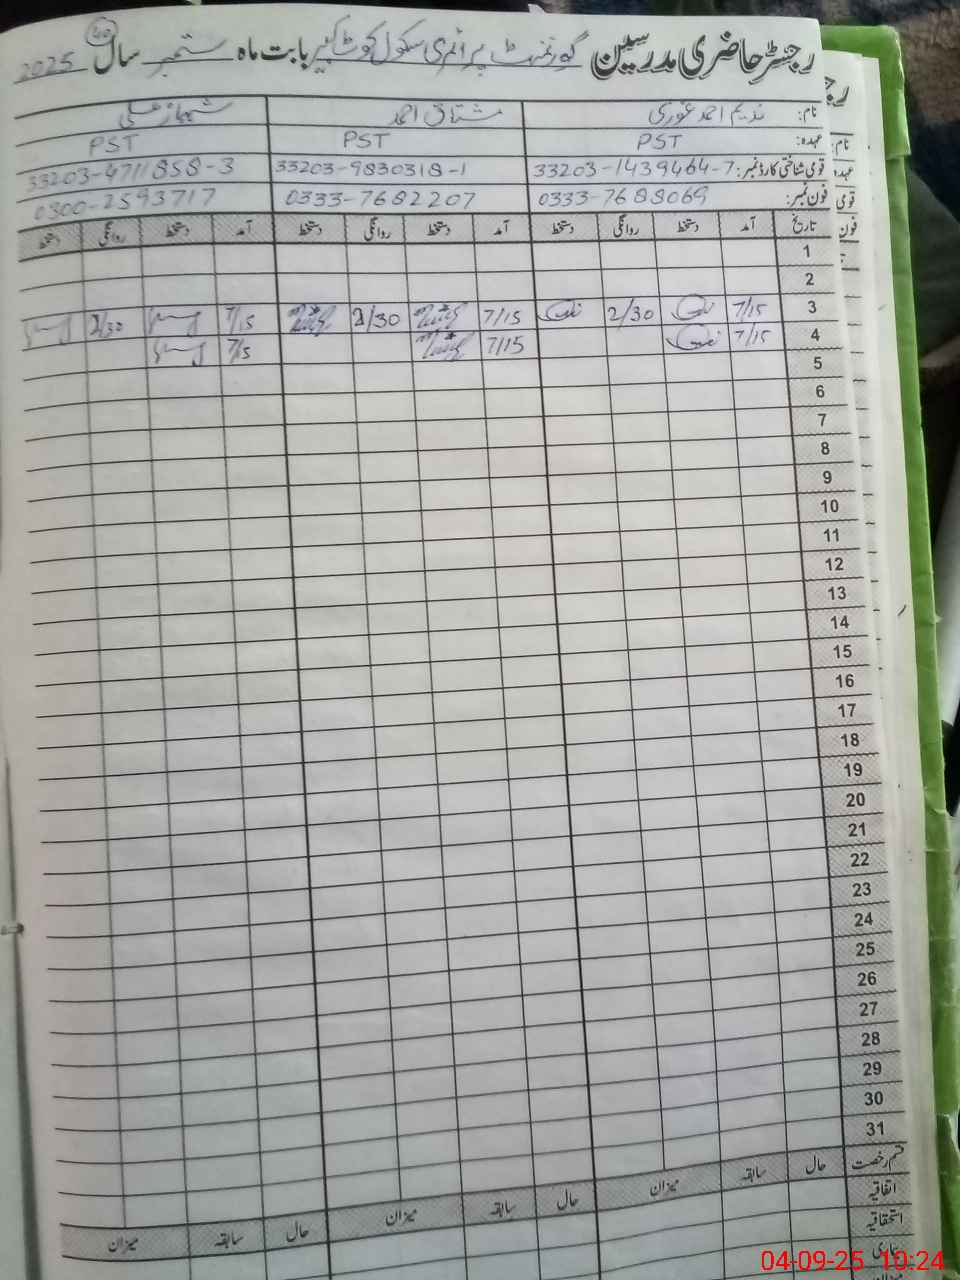 رجسٹر حاضری مدرسین گورنمنٹ پرائمری سکول کوٹ کبیر بابت ماہ ستمبر سال 2025
نام: ندیم احمد غوری مشتاق احمد شہباز علی
عہدہ: PST PST PST
قومی شناختی کارڈ نمبر: 33203-1439464-7 33203-9830318-1 33203-4711858-3
فون نمبر: 0333-7688069 0333-7682207 0300-2593717
تاریخ آمد دستخط روانگی دستخط آمد دستخط روانگی دستخط آمد دستخط روانگی دستخط
1
2
3 7/15 2/30 7/15 2/30 7/15 2/30
4 7/15 7/15 7/5
5
6
7
8
9
10
11
12
13
14
15
16
17
18
19
20
21
22
23
24
25
26
27
28
29
30
31
قسم رخصت حال سابقہ میزان حال سابقہ میزان حال سابقہ میزان
اتفاقیہ
استحقاقیہ
بیماری
04-09-25 10:24